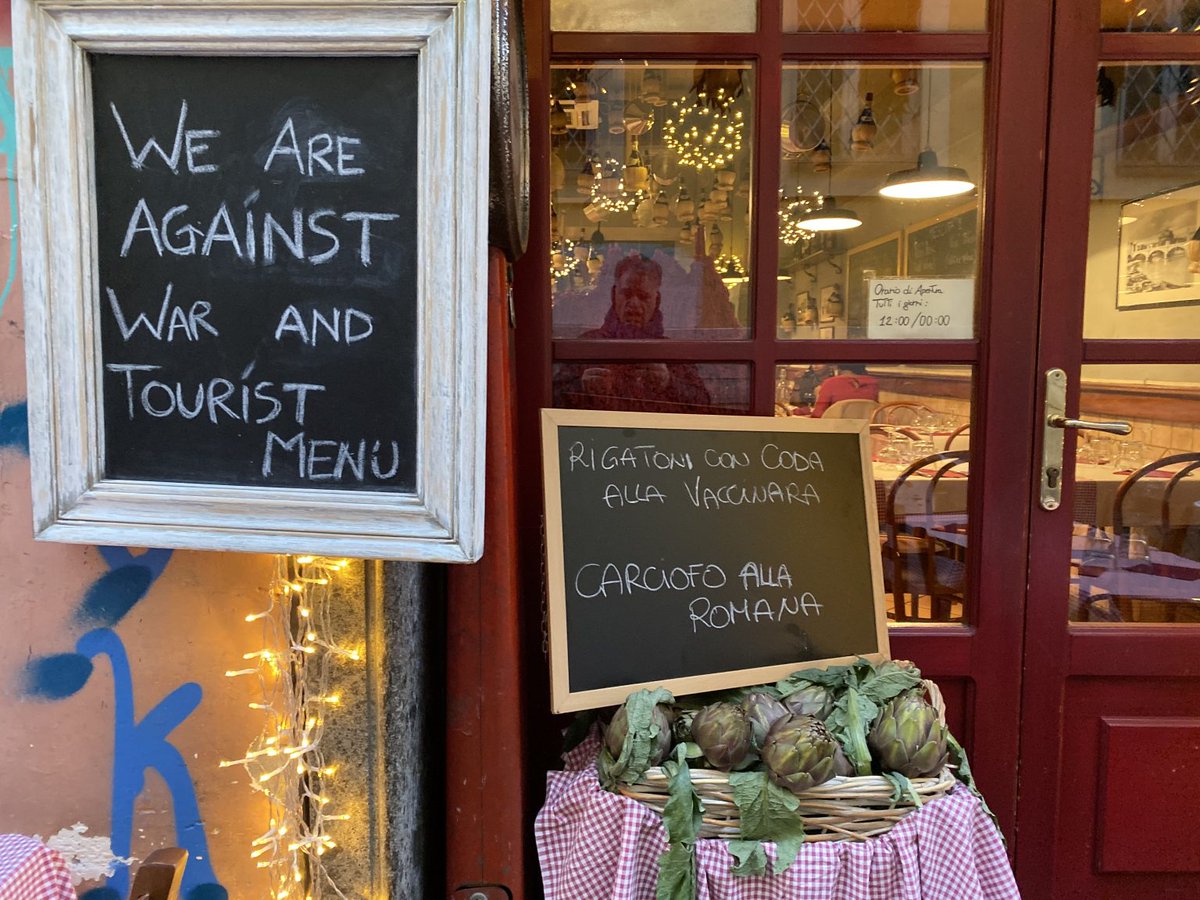 WE ARE
AGAINST
WAR AND
TOURIST
MENÙ
Orario di Apertura
Tutti i giorni:
12:00/00:00
RIGATONI CON CODA
ALLA VACCINARA
CARCIOFO ALLA
ROMANA